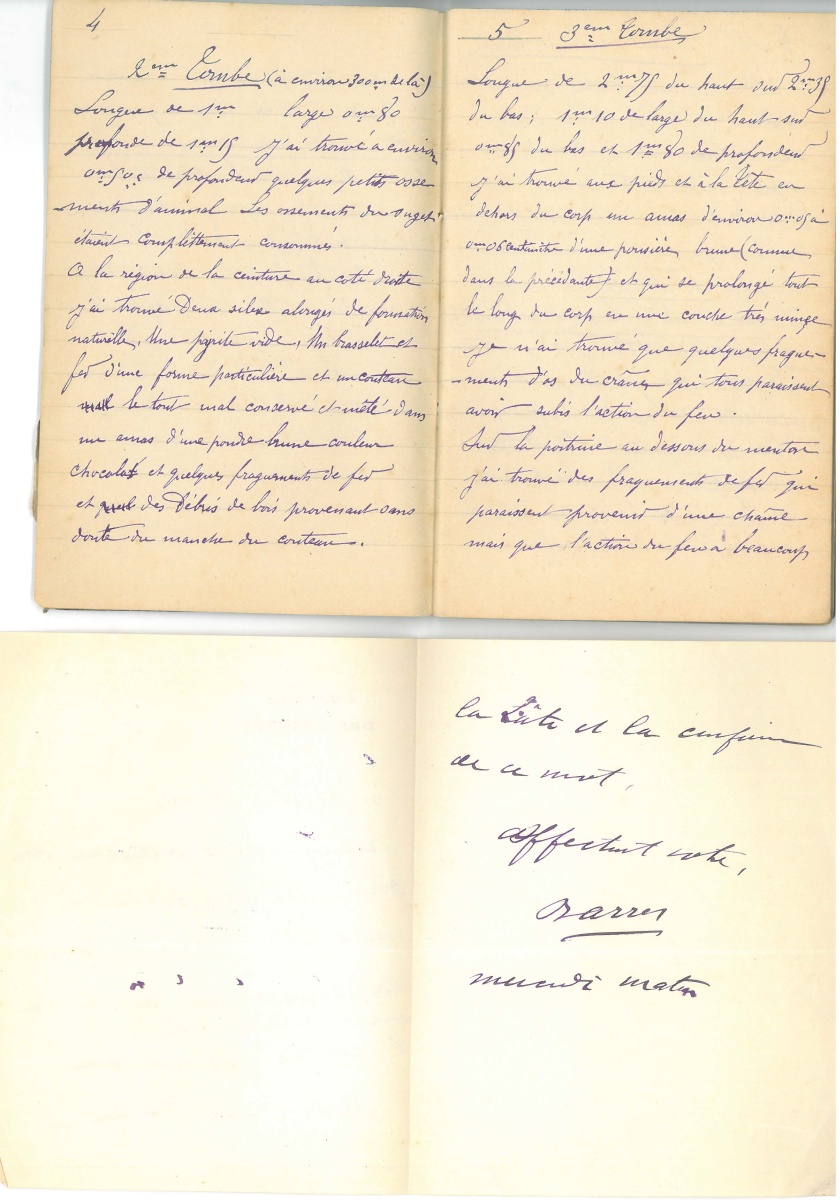 4
2em Tombe (à environ 300m de là)
Longue de 1m large 0m80
profonde de 1m15 j'ai trouvé à environ
0m50 de profondeur quelques petits osse
-ments d'animal Les ossements du sujet
étaient complèttement consommés.
A la région de la ceinture au coté droite
j'ai trouvé Deux silex alongés de formation
naturelle, Une pyrite vide, Un brasselet et
fer d'une forme particulière et un couteau
le tout mal conservé et mêlé dans
un amas d'une poudre brune couleur
chocolat et quelques fraguements de fer
et des Débris de bois provenant sans
doute du manche du couteau.
5 3em Tombe
Longue de 2m75 du haut sur 2m35
du bas; 1m10 de large du haut sur
0m85 du bas et 1m80 de profondeur
j'ai trouvé aux pieds et à la tête en
dehors du corp un amas d'environ 0m05 à
0m06 centimètre d'une pousière brune (comme
dans la précédante) et qui se prolongé tout
le long du corp en une couche très minçe
Je n'ai trouvé que quelques frague-
-ments d'os du crâne qui tous paraissent
avoir subis l'action du feu.
Sur la poitrine au dessous du menton
j'ai trouvé des fraguements de fer qui
paraissent provenir d'une chaîne
mais que l'action du feu a beaucoup
la hâte et la confusion
de ce mot,
affectueux votre,
Barrès
mercredi matin